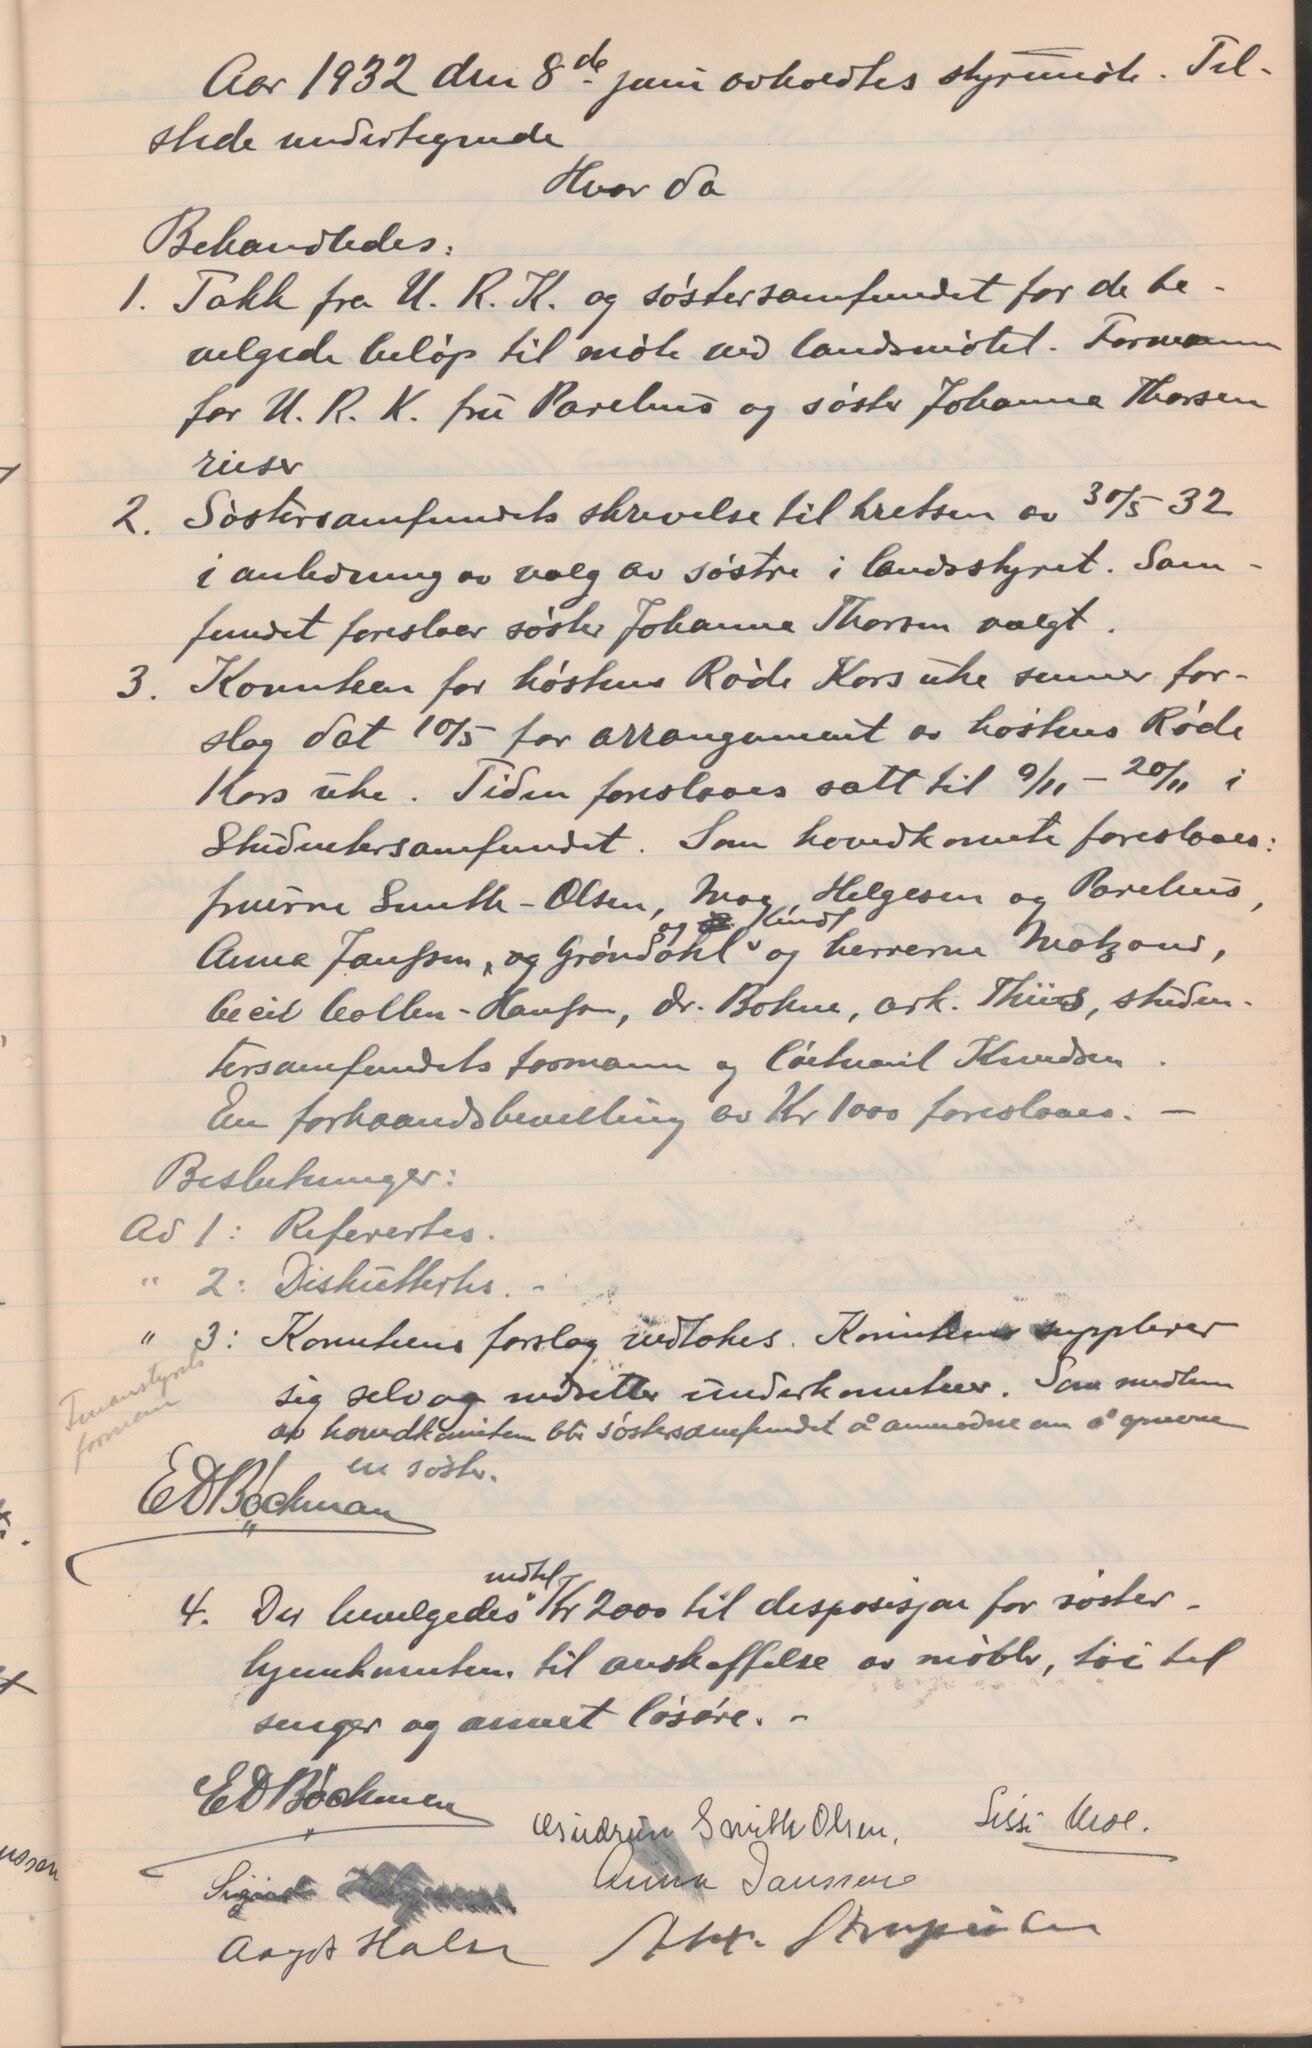 Aar 1932 den 8de juni avholdtes styremøte. Til-
stede undertegnede
Hvor da
Behandledes:
1. Takk fra U. R. K. og søstersamfundet for de be-
vilgede beløp til møte ved landsmøtet. Formann
for U. R. K. fru Parelius og søster Johanne Thorsen
reiser
2. Søstersamfundets skrivelse til kretsen av 30/5-32
i anledning av valg av søstre i landsstyret. Sam-
fundet foreslaar søster Johanne Thorsen valgt.
3. Komiteen for høstens Røde Kors uke senner for-
slag dat 10/5 for arrangement av høstens Røde
Kors uke. Tiden foreslaaes satt til 9/11 - 20/11 i
Studentersamfundet. Som hovedkomite foreslaaes:
fruerne Smith-Olsen, Moe, Helgesen og Parelius,
og Kindt
Anna Janssen, og Grøndahl og herrerne Matzow,
Cecil Collin-Hansen, dr. Bohne, ark. Thiis, studen-
tersamfundets formann og løitnant Knudsen.
En forhaandsbevilling av Kr 1000 foreslaaes. -
Beslutninger:
Ad 1: Referertes.
" 2: Diskutertes. -
" 3: Komiteens forslag vedtokes. Komiteen supplerer
sig selv og nedsetter underkomiteer. Som medlem
av hovedkomiteen blir søstersamfundet å anmodne om å opnevne
en søster.
Finansstyrets
formann
EDBøckman
nedtil
4. Der bevilgedes Kr 2000 til disposisjon for søster-
hjemkomiteen til anskaffelse av møbler, tøi til
senger og annet løsøre. -
EDBøckman
Gudrun Smith Olsen. Sissi Moe.
Sigrid Helgesen Anna Janssen
Aagot Halse